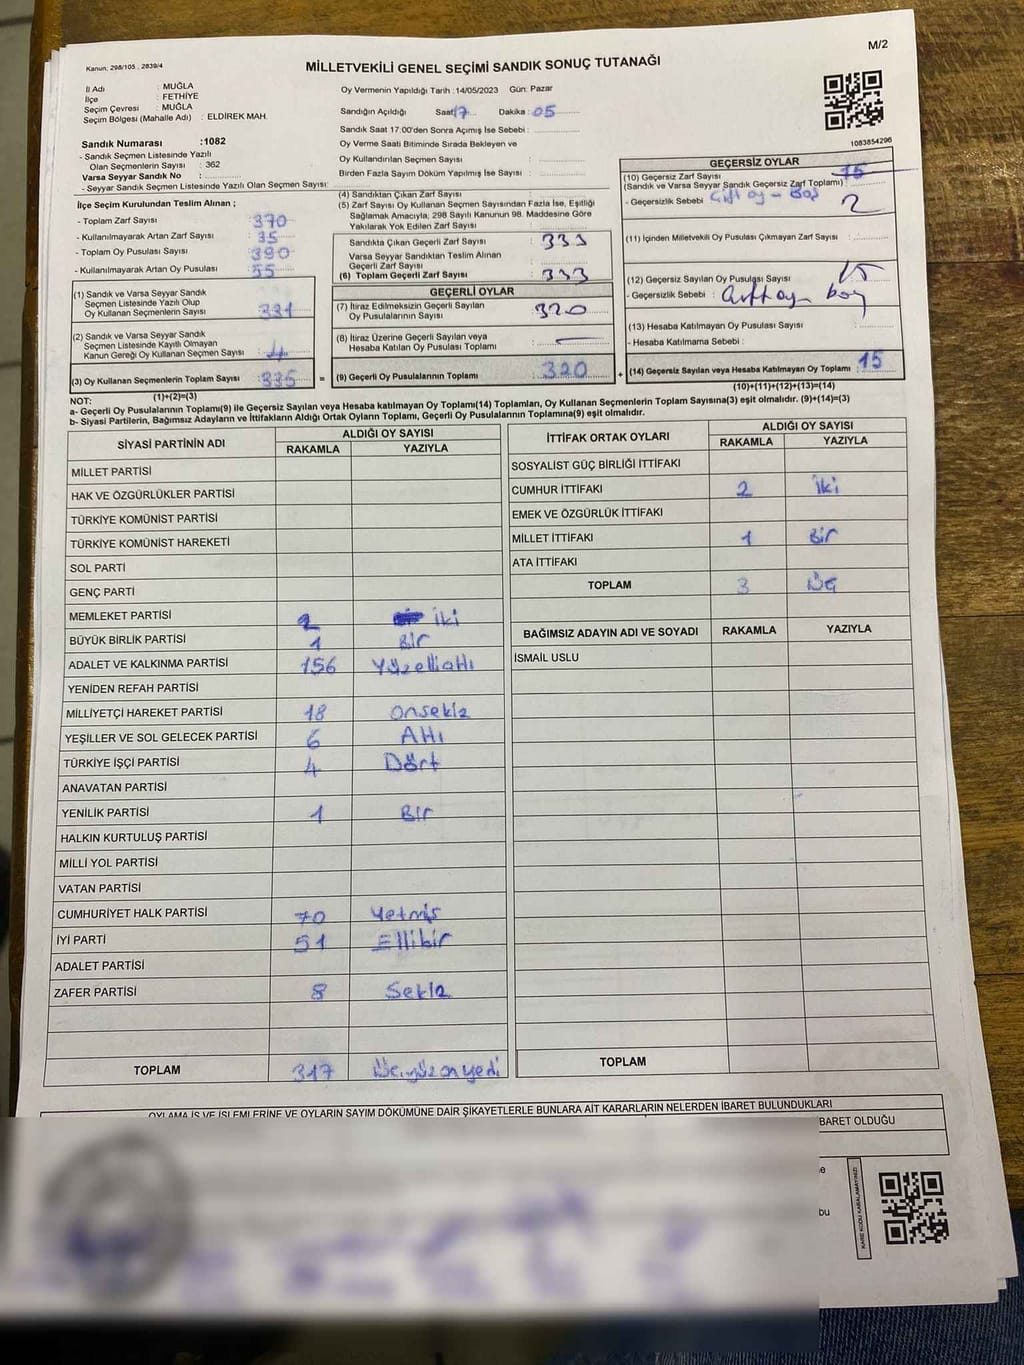 M/2
Kanun: 298/105 , 2839/4
MİLLETVEKİLİ GENEL SEÇİMİ SANDIK SONUÇ TUTANAĞI
İl Adı : MUĞLA
İlçe : FETHİYE
Seçim Çevresi : MUĞLA
Seçim Bölgesi (Mahalle Adı) : ELDİREK MAH.
Sandık Numarası :1082
- Sandık Seçmen Listesinde Yazılı
Olan Seçmenlerin Sayısı : 362
Varsa Seyyar Sandık No :
- Seyyar Sandık Seçmen Listesinde Yazılı Olan Seçmen Sayısı:
Oy Vermenin Yapıldığı Tarih :14/05/2023 Gün: Pazar
Sandığın Açıldığı Saat: 17 Dakika : 05
Sandık Saat 17:00'den Sonra Açmış İse Sebebi :
Oy Verme Saati Bitiminde Sırada Bekleyen ve
Oy Kullandırılan Seçmen Sayısı :
Birden Fazla Sayım Döküm Yapılmış İse Sayısı :
1083854296
İlçe Seçim Kurulundan Teslim Alınan ;
- Toplam Zarf Sayısı : 370
- Kullanılmayarak Artan Zarf Sayısı : 35
- Toplam Oy Pusulası Sayısı : 390
- Kullanılmayarak Artan Oy Pusulası : 55
(1) Sandık ve Varsa Seyyar Sandık
Seçmen Listesinde Yazılı Olup
Oy Kullanan Seçmenlerin Sayısı : 331
(2) Sandık ve Varsa Seyyar Sandık
Seçmen Listesinde Kayıtlı Olmayan
Kanun Gereği Oy Kullanan Seçmen Sayısı : 4
(3) Oy Kullanan Seçmenlerin Toplam Sayısı : 335
(1)+(2)=(3)
(4) Sandıktan Çıkan Zarf Sayısı :
(5) Zarf Sayısı Oy Kullanan Seçmen Sayısından Fazla İse, Eşitliği
Sağlamak Amacıyla, 298 Sayılı Kanunun 98. Maddesine Göre
Yakılarak Yok Edilen Zarf Sayısı :
Sandıkta Çıkan Geçerli Zarf Sayısı : 333
Varsa Seyyar Sandıktan Teslim Alınan
Geçerli Zarf Sayısı :
(6) Toplam Geçerli Zarf Sayısı : 333
GEÇERLİ OYLAR
(7) İtiraz Edilmeksizin Geçerli Sayılan
Oy Pusulalarının Sayısı : 320
(8) İtiraz Üzerine Geçerli Sayılan veya
Hesaba Katılan Oy Pusulası Toplamı : —
= (9) Geçerli Oy Pusulalarının Toplamı : 320
GEÇERSİZ OYLAR
(10) Geçersiz Zarf Sayısı 15
(Sandık ve Varsa Seyyar Sandık Geçersiz Zarf Toplamı) :
- Geçersizlik Sebebi : Çift oy - Boş 2
(11) İçinden Milletvekili Oy Pusulası Çıkmayan Zarf Sayısı :
(12) Geçersiz Sayılan Oy Pusulası Sayısı : 15
- Geçersizlik Sebebi : Çift oy - boş
(13) Hesaba Katılmayan Oy Pusulası Sayısı :
- Hesaba Katılmama Sebebi :
+ (14) Geçersiz Sayılan veya Hesaba Katılmayan Oy Toplamı : 15
(10)+(11)+(12)+(13)=(14)
NOT:
a- Geçerli Oy Pusulalarının Toplamı(9) ile Geçersiz Sayılan veya Hesaba katılmayan Oy Toplamı(14) Toplamları, Oy Kullanan Seçmenlerin Toplam Sayısına(3) eşit olmalıdır. (9)+(14)=(3)
b- Siyasi Partilerin, Bağımsız Adayların ve İttifakların Aldığı Ortak Oyların Toplamı, Geçerli Oy Pusulalarının Toplamına(9) eşit olmalıdır.
SİYASİ PARTİNİN ADI ALDIĞI OY SAYISI
RAKAMLA YAZIYLA
MİLLET PARTİSİ
HAK VE ÖZGÜRLÜKLER PARTİSİ
TÜRKİYE KOMÜNİST PARTİSİ
TÜRKİYE KOMÜNİST HAREKETİ
SOL PARTİ
GENÇ PARTİ
MEMLEKET PARTİSİ 2 iki
BÜYÜK BİRLİK PARTİSİ 1 Bir
ADALET VE KALKINMA PARTİSİ 156 Yüzellialtı
YENİDEN REFAH PARTİSİ
MİLLİYETÇİ HAREKET PARTİSİ 18 onsekiz
YEŞİLLER VE SOL GELECEK PARTİSİ 6 Altı
TÜRKİYE İŞÇİ PARTİSİ 4 Dört
ANAVATAN PARTİSİ
YENİLİK PARTİSİ 1 Bir
HALKIN KURTULUŞ PARTİSİ
MİLLİ YOL PARTİSİ
VATAN PARTİSİ
CUMHURİYET HALK PARTİSİ 70 Yetmiş
İYİ PARTİ 51 Ellibir
ADALET PARTİSİ
ZAFER PARTİSİ 8 Sekiz
TOPLAM 317 Üçyüzonyedi
İTTİFAK ORTAK OYLARI ALDIĞI OY SAYISI
RAKAMLA YAZIYLA
SOSYALİST GÜÇ BİRLİĞİ İTTİFAKI
CUMHUR İTTİFAKI 2 iki
EMEK VE ÖZGÜRLÜK İTTİFAKI
MİLLET İTTİFAKI 1 Bir
ATA İTTİFAKI
TOPLAM 3 Üç
BAĞIMSIZ ADAYIN ADI VE SOYADI RAKAMLA YAZIYLA
İSMAİL USLU
TOPLAM
OYLAMA İŞ VE İŞLEMLERİNE VE OYLARIN SAYIM DÖKÜMÜNE DAİR ŞİKAYETLERLE BUNLARA AİT KARARLARIN NELERDEN İBARET BULUNDUKLARI
BARET OLDUĞU
KARE KODU KARALAMAYINIZ!